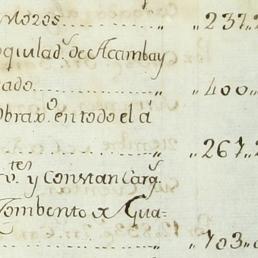 Moros ........ „ 237 „ 2
oquilad.s de Acambay
ado ........ „ 400 „
Obra p.a en todo el á
........ „ 267 „ 2
tes y Constan Carg.s
Combento de Gua
........ „ 703 „